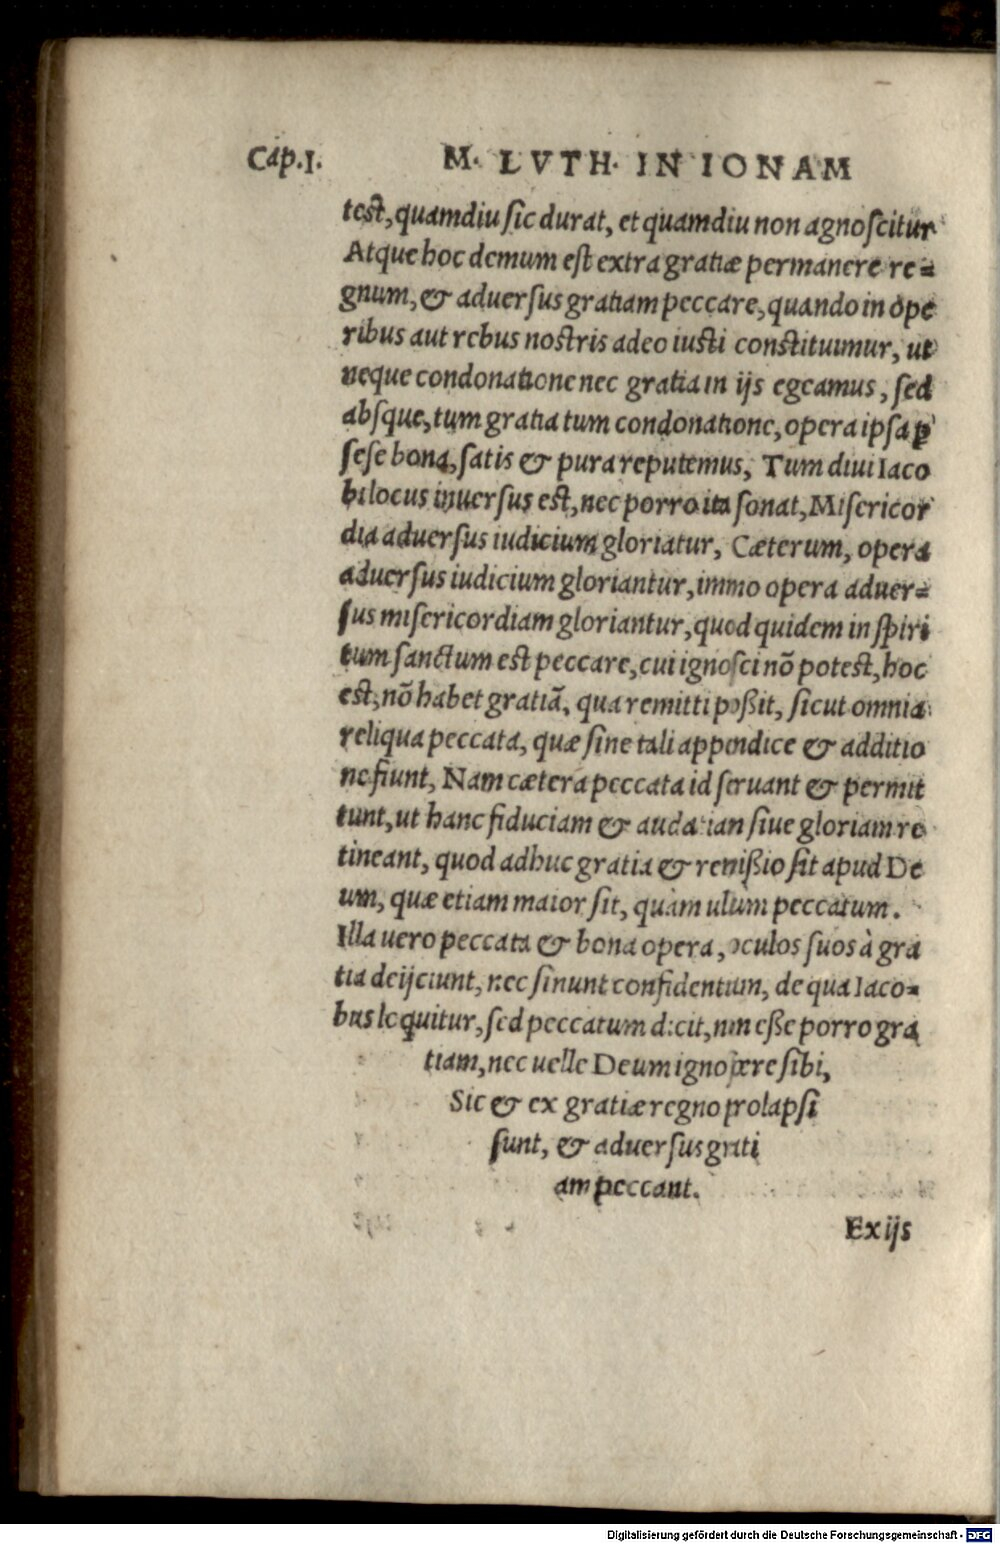 Cap.I. M. LVTH. IN IONAM
test, quamdiu sic durat, et quamdiu non agnoscitur
Atque hoc demum est extra gratiæ permanere re=
gnum, & aduersus gratiam peccare, quando in ope
ribus aut rebus nostris adeo iusti constituimur, ut
neque condonatione nec gratia in ijs egeamus, sed
absque, tum gratia tum condonatione, opera ipsa ꝑ
sese bona, satis & pura reputemus, Tum diui Iaco
bi locus inuersus est, nec porro ita sonat, Misericor
dia aduersus iudicium gloriatur, Cæterum, opera
aduersus iudicium gloriantur, immo opera aduer=
sus misericordiam gloriantur, quod quidem in spiri
tum sanctum est peccare, cui ignosci nõ potest, hoc
est, nõ habet gratiã, qua remitti poßit, sicut omnia
reliqua peccata, quæ sine tali appendice & additio
ne fiunt, Nam cætera peccata id seruant & permit
tunt, ut hanc fiduciam & audaciam siue gloriam re
tineant, quod adhuc gratia & remißio sit apud De
um, quæ etiam maior sit, quàm ulum peccatum.
Illa uero peccata & bona opera, oculos suos à gra
tia deijciunt, nec sinunt confidentium, de qua Iaco=
bus loquitur, sed peccatum dicit, non eße porro gra
tiam, nec uelle Deum ignoscere sibi,
Sic & ex gratiæ regno prolapsi
sunt, & aduersus grati
am peccant.
Ex ijs
Digitalisierung gefördert durch die Deutsche Forschungsgemeinschaft - DFG